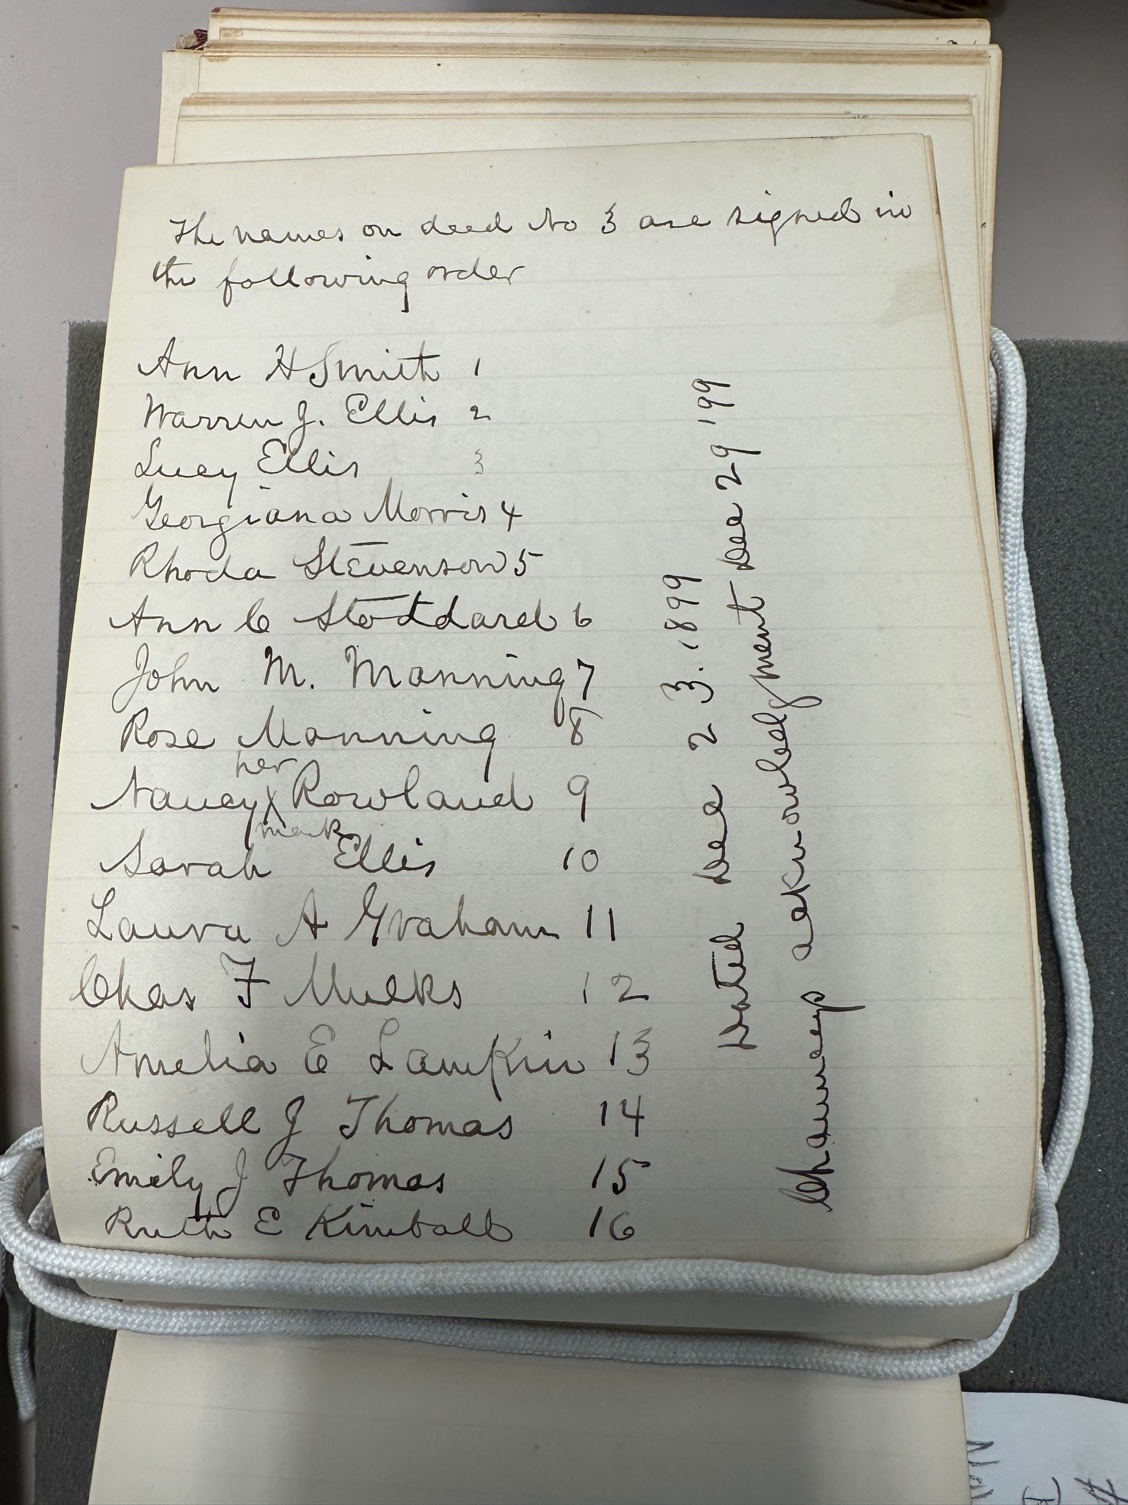 The names on deed No 3 are signed in
the following order
Ann H Smith 1
Warren J. Ellis 2
Lucy Ellis 3
Georgiana Morris 4
Rhoda Stevenson 5
Ann C Stoddard 6
John M. Manning 7
Rose Manning 8
her
Nancy X Rowland 9
mark
Sarah Ellis 10
Laura A Graham 11
Chas F Mulks 12
Amelia E Lamkin 13
Russell J Thomas 14
Emily J Thomas 15
Ruth E Kimball 16
Dated Dec 23. 1899
Chauncey acknowledgment Dec 29 199